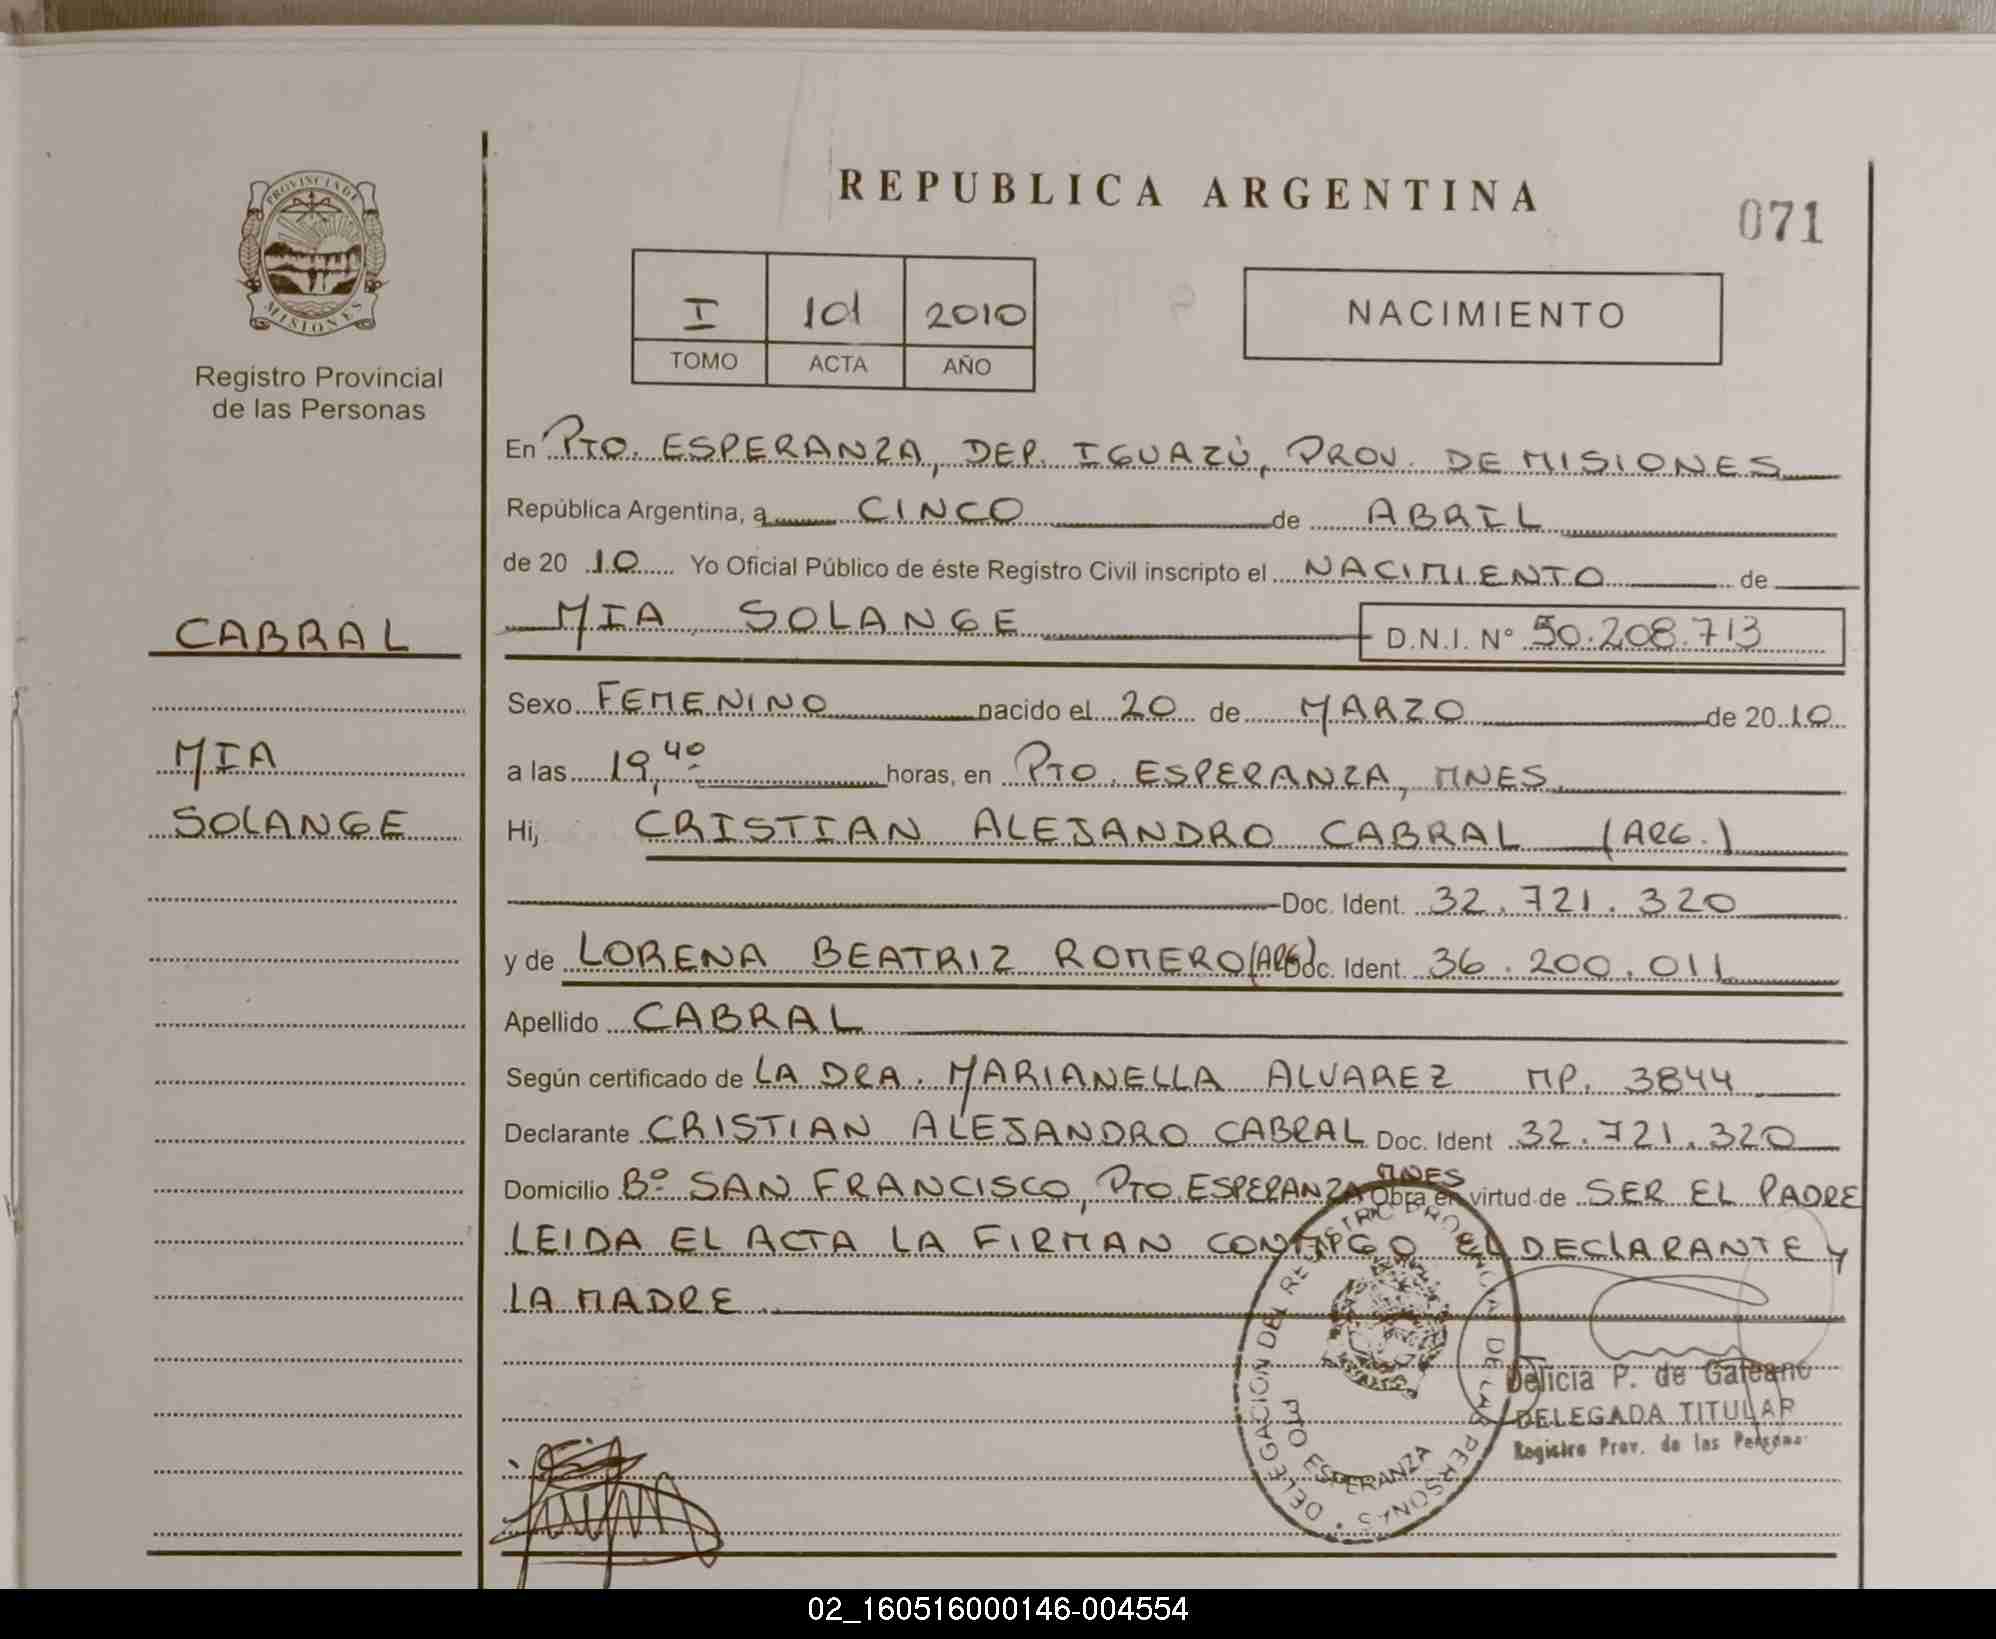 REPUBLICA ARGENTINA
071
PROVINCIA DE
MISIONES
Registro Provincial
de las Personas
I 101 2010
TOMO ACTA AÑO
NACIMIENTO
En PTO. ESPERANZA, DEP. IGUAZÚ, PROV. DE MISIONES
República Argentina, a CINCO de ABRIL
de 20 10 Yo Oficial Público de éste Registro Civil inscripto el NACIMIENTO de
MIA SOLANGE D.N.I. Nº 50.208.713
CABRAL
MIA
SOLANGE
Sexo FEMENINO nacido el 20 de MARZO de 20 10
a las 19,40 horas, en PTO. ESPERANZA, MNES.
Hij CRISTIAN ALEJANDRO CABRAL (ARG.)
Doc. Ident. 32.721.320
y de LORENA BEATRIZ ROMERO (ARG) Doc. Ident. 36.200.011
Apellido CABRAL
Según certificado de LA DRA. MARIANELLA ALVAREZ MP. 3844
Declarante CRISTIAN ALEJANDRO CABRAL Doc. Ident 32.721.320
Domicilio Bº SAN FRANCISCO, PTO ESPERANZA MNES Obra en virtud de SER EL PADRE
LEIDA EL ACTA LA FIRMAN CONMIGO EL DECLARANTE Y
LA MADRE.
DELEGACION DEL REGISTRO PROVINCIAL DE LAS PERSONAS
PTO ESPERANZA
Delicia P. de Galeano
DELEGADA TITULAR
Registro Prov. de las Personas
02_160516000146-004554